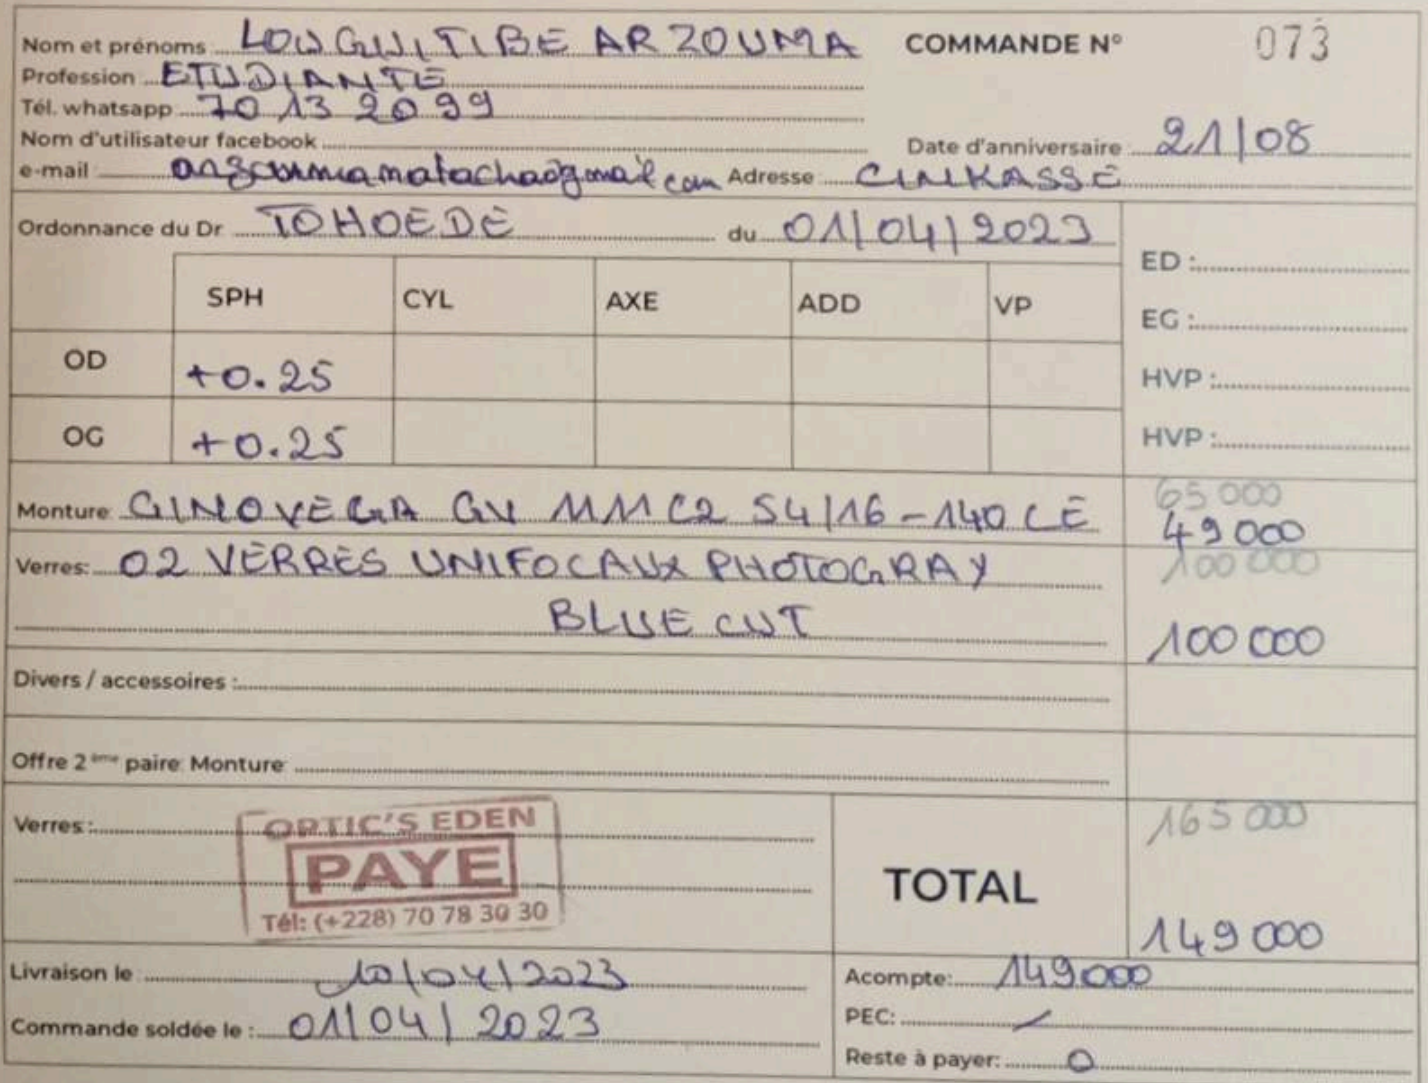 Nom et prénoms LOUGUITIBE ARZOUMA COMMANDE N° 073
Profession ETUDIANTE
Tél. whatsapp 70 13 20 99
Nom d'utilisateur facebook Date d'anniversaire 21/08
e-mail Adresse CINKASSÉ
Ordonnance du Dr TOHOEDE du 01/04/2023
ED :
SPH CYL AXE ADD VP
EG :
OD +0.25
HVP :
OG +0.25
HVP :
65 000
Monture GINOVEGA GV MM C2 54/16-140 CE 49 000
Verres: 02 VERRES UNIFOCAUX PHOTOGRAY 100 000
BLUE CUT 100 000
Divers / accessoires :
Offre 2ème paire Monture
Verres : 165 000
OPTIC'S EDEN
PAYE
Tél: (+228) 70 78 30 30
TOTAL
149 000
Livraison le 10/04/2023 Acompte: 149 000
Commande soldée le : 01/04/2023 PEC: /
Reste à payer: 0